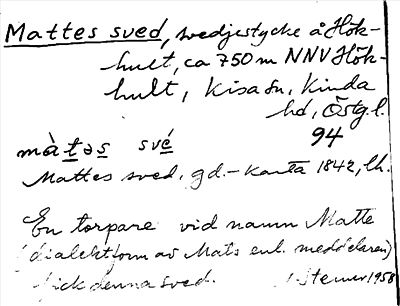 Mattes sved, svedjestycke å Hök-
hult, ca 750 m NNV Hök-
hult, Kisa sn, Kinda
hd, Östg.l.
94
màtəs své
Mattes sved, gd.-karta 1842, Ch.
En torpare vid namn Matte
(dialektform av Mats enl. meddelaren)
fick denna sved. Stemer 1958